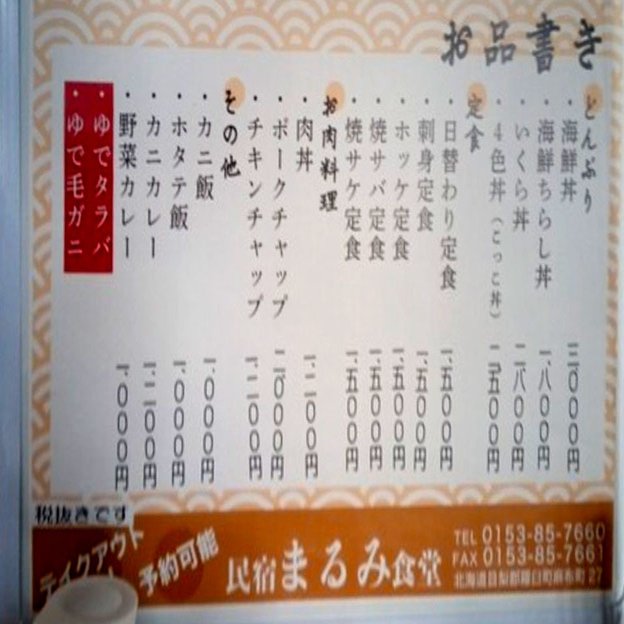 お品書き
どんぶり
・海鮮丼 三、〇〇〇円
・海鮮ちらし丼 一、八〇〇円
・いくら丼 二、八〇〇円
・4色丼（とっこ丼） 二、五〇〇円
定食
・日替わり定食 一、五〇〇円
・刺身定食 一、五〇〇円
・ホッケ定食 一、五〇〇円
・焼サバ定食 一、五〇〇円
・焼サケ定食 一、五〇〇円
お肉料理
・肉丼 一、二〇〇円
・ポークチャップ 二、〇〇〇円
・チキンチャップ 一、二〇〇円
その他
・カニ飯 一、〇〇〇円
・ホタテ飯 一、〇〇〇円
・カニカレー 一、二〇〇円
・野菜カレー 一、〇〇〇円
・ゆでタラバ
・ゆで毛ガニ
税抜きです
テイクアウト
予約可能
民宿まるみ食堂
TEL 0153-85-7660
FAX 0153-85-7661
北海道目梨郡羅臼町麻布町27